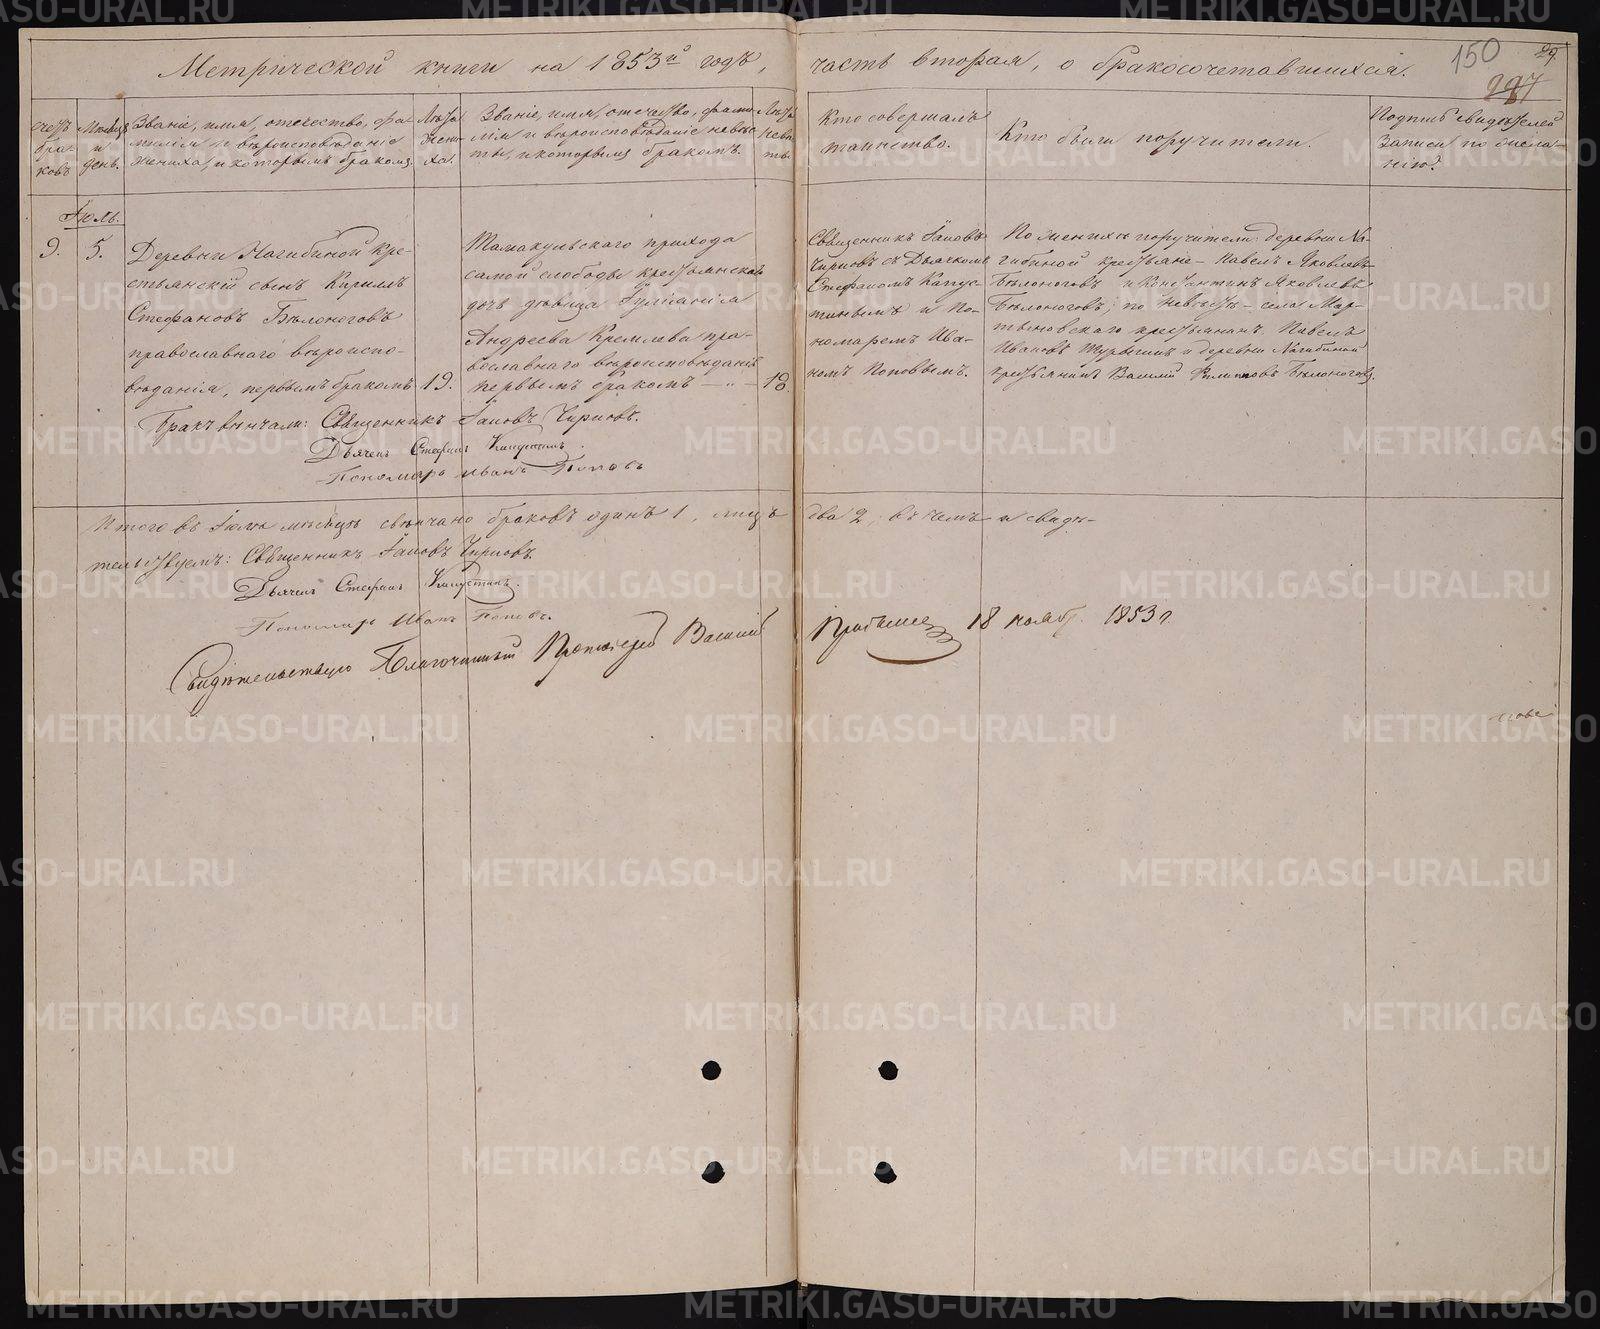 Метрической книги на 1853й годъ, часть вторая, о бракосочетавшихся.
150
29.
счетъ браковъ
Мѣсяцъ и день.
Званіе, имя, отечество, фамилія и вѣроисповѣданіе жениха, и которымъ бракомъ.
Лѣта жениха.
Званіе, имя, отечество, фамилія и вѣроисповѣданіе невѣсты, и которымъ бракомъ.
Лѣта невѣсты.
Кто совершалъ таинство.
Кто были поручители.
Подпись свидѣтелей записи по
Іюль.
9.
5.
Деревни Нагибиной кре-
стьянскій сынъ Кириллъ
Стефановъ Бѣлоноговъ
православнаго вѣроиспо-
вѣданія, первымъ бракомъ
19.
Тамакульскаго прихода
самой слободы крестьянская
дочь дѣвица Іуліанія
Андреева Кремлева пра-
вославнаго вѣроисповѣданія
первымъ бракомъ — „ —
18.
Священникъ Іаковъ
Чирковъ съ Дьячкомъ
Стефаномъ Капус-
тинымъ и По-
номаремъ Ива-
номъ Поповымъ.
По женихѣ поручители: деревни На-
гибиной крестьяне — Павелъ Яковлевъ
Бѣлоноговъ и Константинъ Яковлевъ
Бѣлоноговъ; по невѣстѣ — села Мар-
тыновскаго крестьянинъ Павелъ
Ивановъ и деревни Нагибиной
крестьянинъ Василій Филиповъ Бѣлоноговъ.
Бракъ вѣнчали: Священникъ Іаковъ Чирковъ.
Дьячекъ Стефанъ Капустинъ.
Пономарь Иванъ Поповъ
Итого въ Іюлѣ мѣсяцѣ свѣнчано браковъ одинъ 1, лицъ два 2, въ чемъ и свидѣ-
тельствуемъ: Священникъ Іаковъ Чирковъ.
Дьячекъ Стефанъ Капустинъ.
Пономарь Иванъ Поповъ.
Свидѣтельствую Благочинный Протоіерей Василій 18 нояб. 1853 г.
METRIKI.GASO-URAL.RU